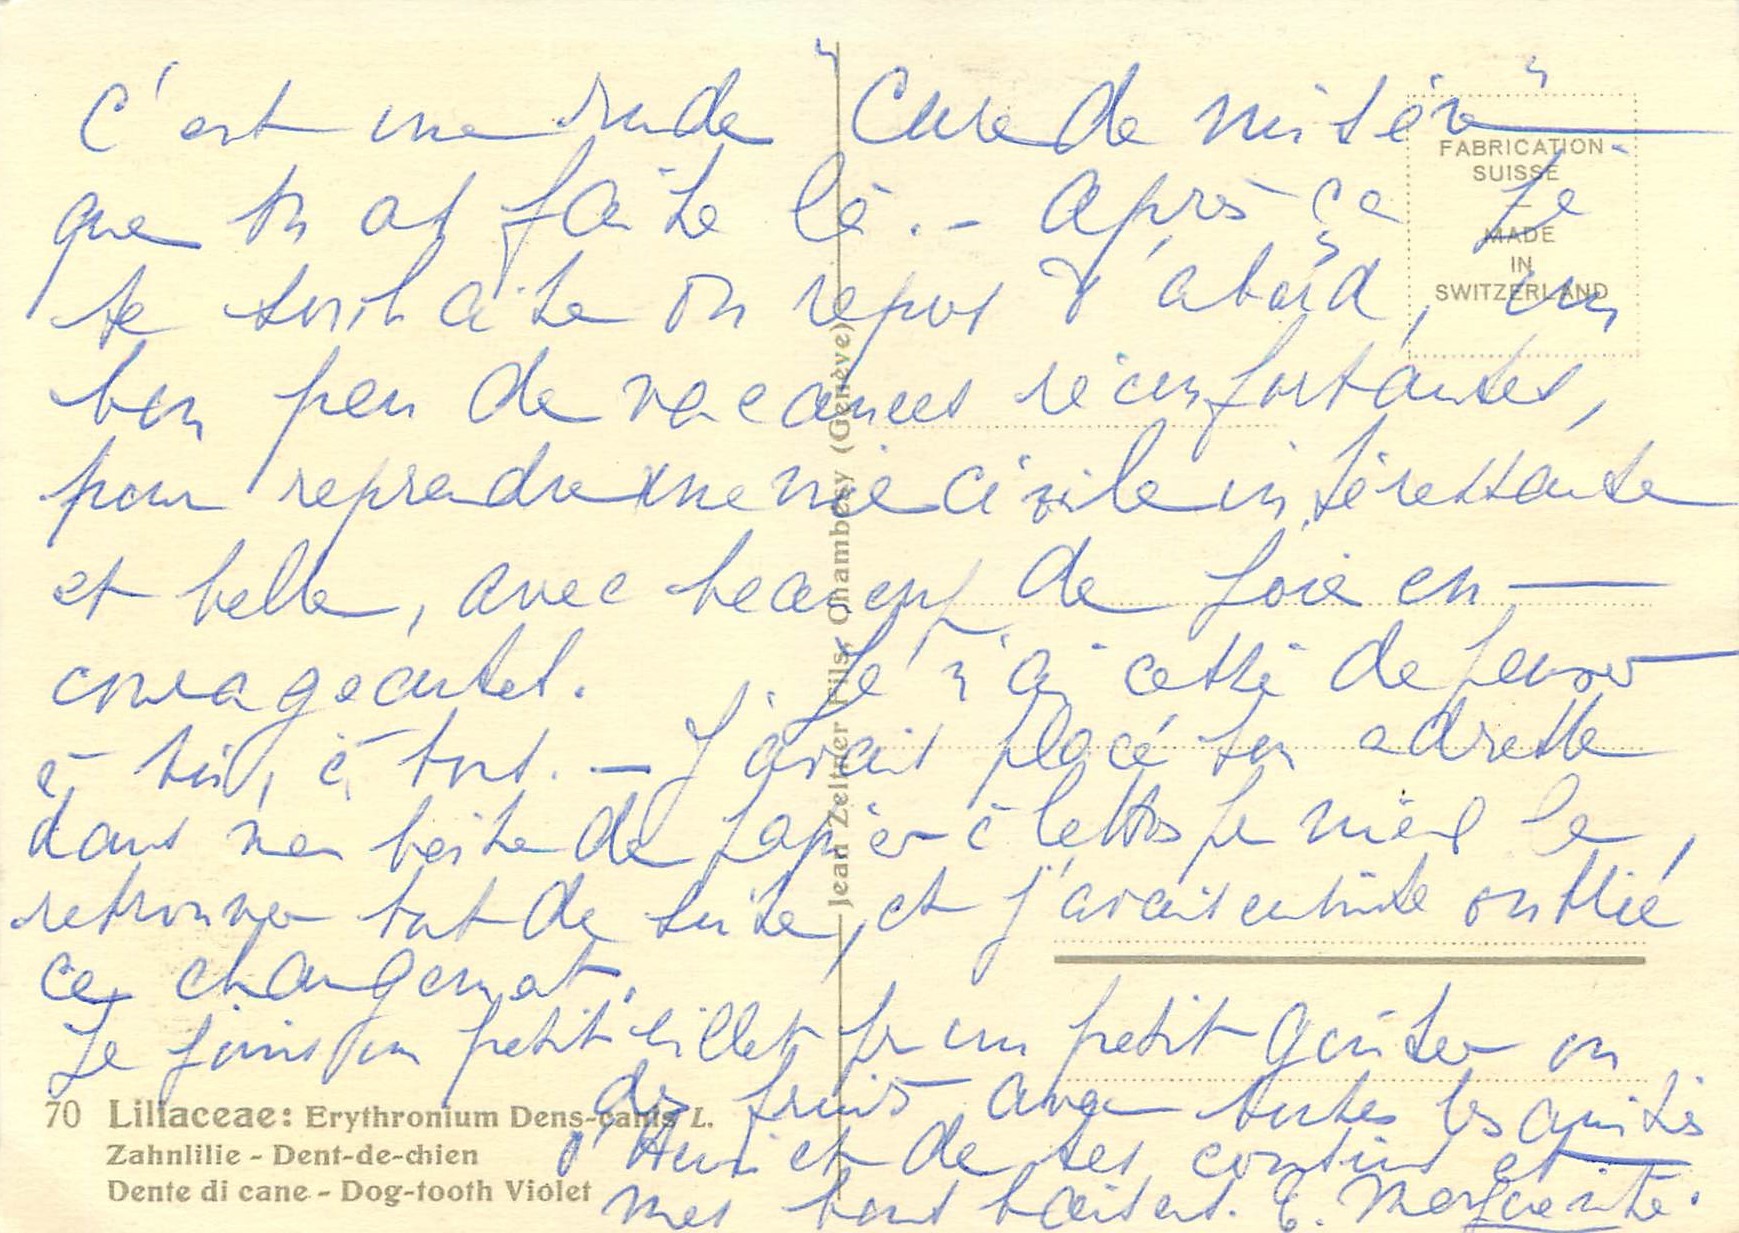 C'est une rude cure de misère
que tu as faite là. - Après ça je
te souhaite du repos d'abord, un
bon peu de vacances réconfortantes,
pour reprendre une vie civile intéressante
et belle, avec beaucoup de joie en-
courageantes. Je n'ai cessé de penser
à toi, à tous. - J'avais placé ton adresse
dans ma boîte de papier à lettres pr mieux la
retrouver tout de suite, et j'avais ensuite oublié
ce changement.
Je joins un petit billet pr un petit goûter ou
des fruits avec toutes les amitiés
d'Henri et de tes cousins et
mes bons baisers. Marguerite.
FABRICATION
SUISSE
MADE
IN
SWITZERLAND
Jean Zeltner Fils, Chambésy (Genève)
70 Liliaceae: Erythronium Dens-canis L.
Zahnlilie - Dent-de-chien
Dente di cane - Dog-tooth Violet